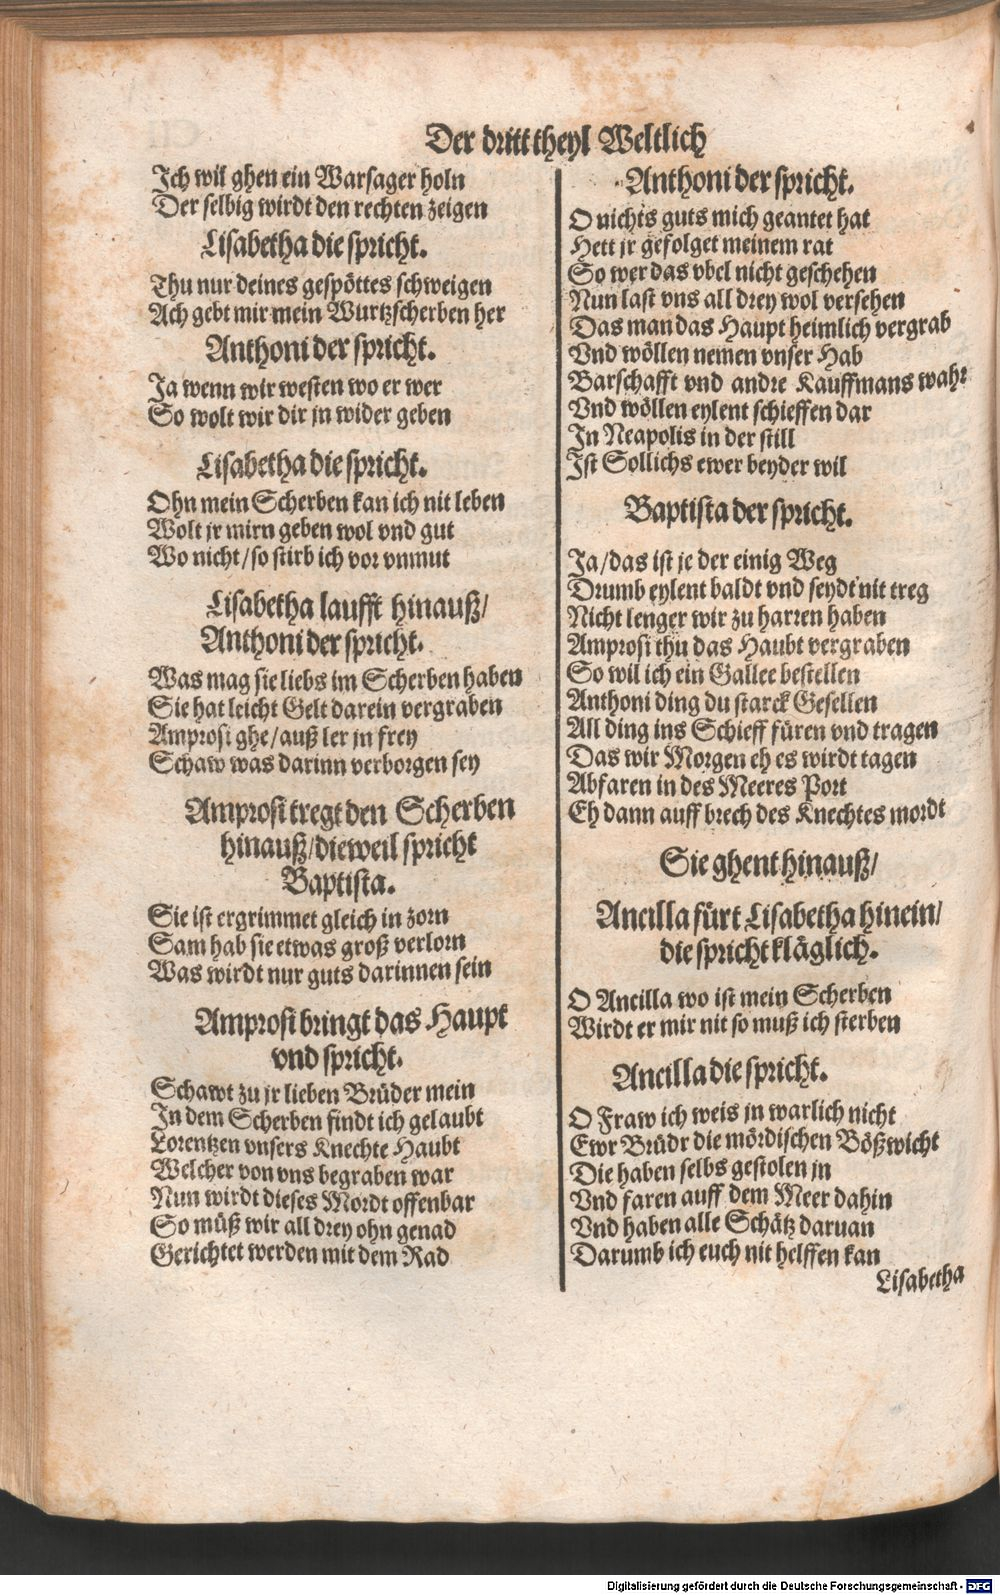 Der dritt theyl Weltlich
Jch wil ghen ein Warsager holn
Der selbig wirdt den rechten zeigen
Lisabetha die spricht.
Thu nur deines gespöttes schweigen
Ach gebt mir mein Wurtzscherben her
Anthoni der spricht.
Ja wenn wir westen wo er wer
So wolt wir dir jn wider geben
Lisabetha die spricht.
Ohn mein Scherben kan ich nit leben
Wolt jr mirn geben wol vnd gut
Wo nicht/so stirb ich vor vnmut
Lisabetha laufft hinauß/
Anthoni der spricht.
Was mag sie liebs im Scherben haben
Sie hat leicht Gelt darein vergraben
Amprosi ghe/auß ler jn frey
Schaw was darinn verborgen sey
Amprosi tregt den Scherben
hinauß/dieweil spricht
Baptista.
Sie ist ergrimmet gleich in zorn
Sam hab sie etwas groß verlorn
Was wirdt nur guts darinnen sein
Amprosi bringt das Haupt
vnd spricht.
Schawt zu jr lieben Brüder mein
In dem Scherben findt ich gelaubt
Lorentzen vnsers Knechte Haubt
Welcher von vns begraben war
Nun wirdt dieses Mordt offenbar
So müß wir all drey ohn genad
Gerichtet werden mit dem Rad
Anthoni der spricht.
O nichts guts mich geantet hat
Hett jr gefolget meinem rat
So wer das vbel nicht geschehen
Nun last vns all drey wol versehen
Das man das Haupt heimlich vergrab
Vnd wöllen nemen vnser Hab
Barschafft vnd andre Kauffmans wahr
Vnd wöllen eylent schieffen dar
In Neapolis in der still
Ist Sollichs ewer beyder wil
Baptista der spricht.
Ja/das ist je der einig Weg
Drumb eylent baldt vnd seydt nit treg
Nicht lenger wir zu harren haben
Amprosi thü das Haubt vergraben
So wil ich ein Gallee bestellen
Anthoni ding du starck Gesellen
All ding ins Schieff füren vnd tragen
Das wir Morgen eh es wirdt tagen
Abfaren in des Meeres Port
Eh dann auff brech des Knechtes mordt
Sie ghent hinauß/
Ancilla fürt Lisabetha hinein/
die spricht kläglich.
O Ancilla wo ist mein Scherben
Wirdt er mir nit so muß ich sterben
Ancilla die spricht.
O Fraw ich weis jn warlich nicht
Ewr Brüdr die mördischen Bößwicht
Die haben selbs gestolen jn
Vnd faren auff dem Meer dahin
Vnd haben alle Schätz daruan
Darumb ich euch nit helffen kan
Lisabetha
Digitalisierung gefördert durch die Deutsche Forschungsgemeinschaft - DFG